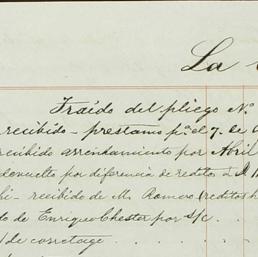 La
Traído del pliego Nº
recibido - prestamo pº el 7. de
recibido arrendamiento por Abril
devuelto por diferencia de reditos
recibido de M. Romero (reditos
to de Enrique Chester por S/C.
/ de corretage . . . .